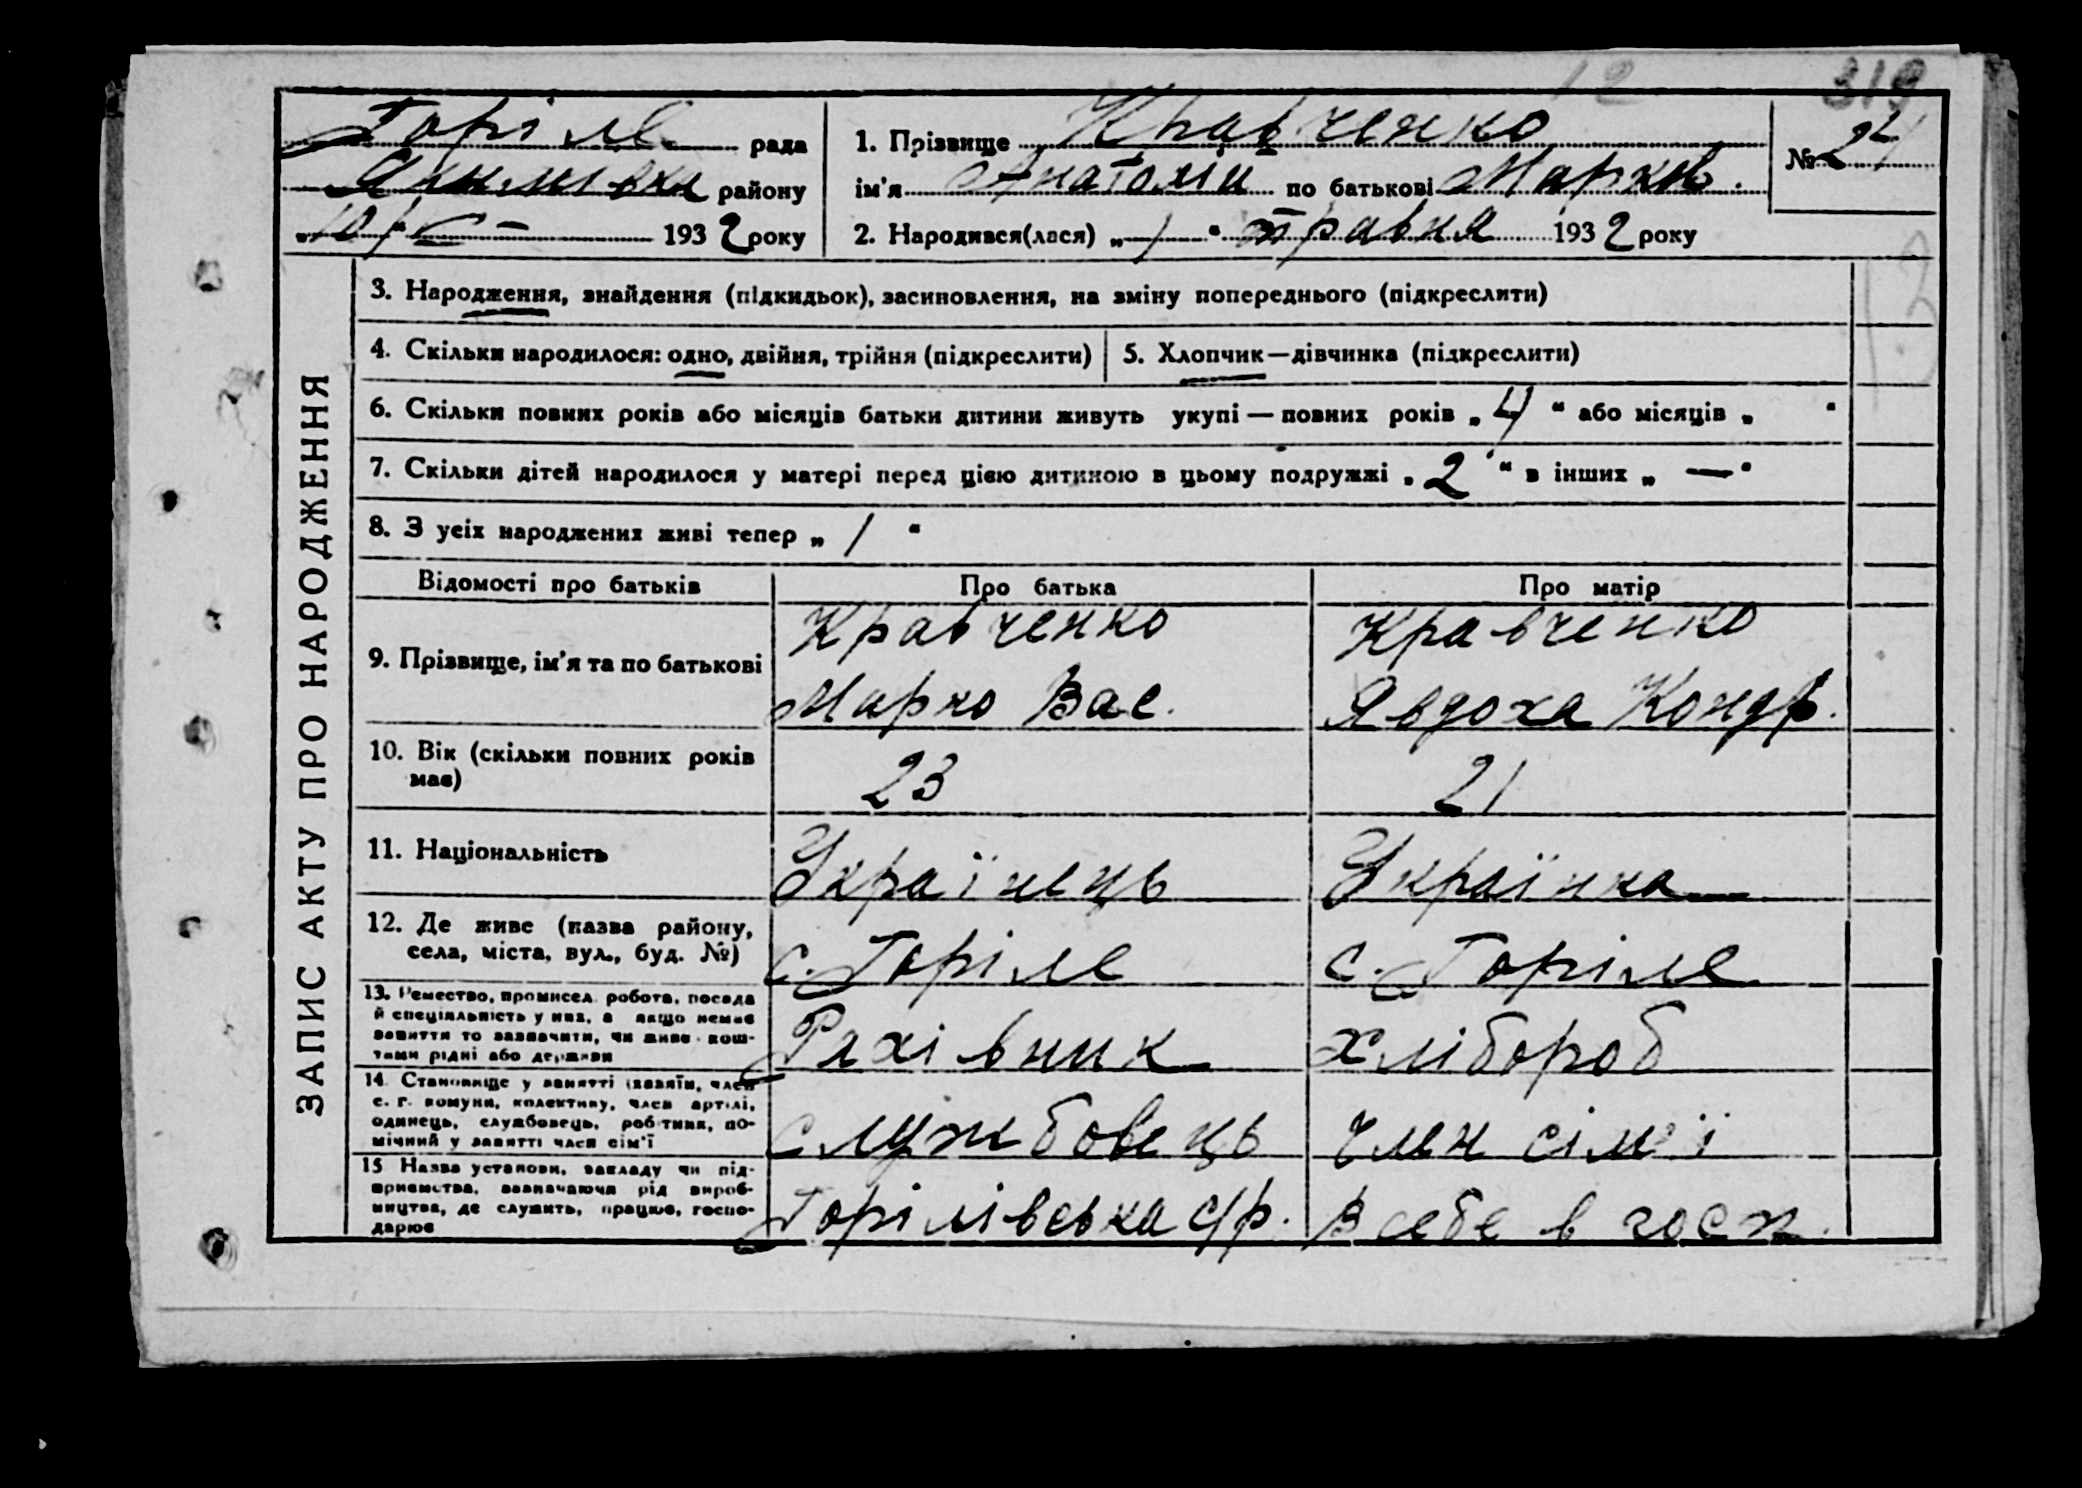 12 319
Горіле рада
району
"10/V- 1932 року
1. Прізвище Кравченко
ім'я Анатолій по батькові Марков.
2. Народився(лася) „ 1 " травня 1932 року
№ 24
ЗАПИС АКТУ ПРО НАРОДЖЕННЯ
3. Народження, знайдення (підкидьок), засиновлення, на зміну попереднього (підкреслити)
4. Скільки народилося: одно, двійня, трійня (підкреслити)
5. Хлопчик—дівчинка (підкреслити)
6. Скільки повних років або місяців батьки дитини живуть укупі — повних років „ 4 " або місяців „ "
7. Скільки дітей народилося у матері перед цією дитиною в цьому подружжі „ 2 " в інших „ — "
8. З усіх народжених живі тепер „ 1 "
Відомості про батьків Про батька Про матір
9. Прізвище, ім'я та по батькові
Кравченко
Марко Вас.
Кравченко
Явдоха Кондр.
10. Вік (скільки повних років
має)
23
21
11. Національність
Українець
Українка
12. Де живе (назва району,
села, міста, вул., буд. №)
с. Горіле
с. Горіле
13. Ремество, промисел, робота, посада
й спеціяльність у них, а якщо немає
заняття то зазначити, чи живе кош-
тами рідні або держави
Рахівник
хлібороб
14. Становище у занятті (хазяїн, член
с. г. комуни, колективу, член артілі,
одинець, службовець, робітник, по-
мічний у занятті член сім'ї
службовець
член сім'ї
15 Назва установи, закладу чи під-
приємства, зазначаючи рід вироб-
ництва, де служить, працює, госпо-
дарює
Горілівська с/р.
В себе в госп.